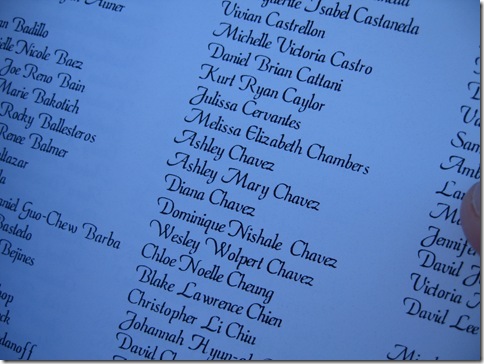 Anner
Badillo
Nicole Baez
Joe Reno Bain
Marie Bakotich
Rocky Ballesteros
Renee Balmer
Guo-Chew Barba
Bastedo
Bejines
Isabel Castaneda
Vivian Castrellon
Michelle Victoria Castro
Daniel Brian Cattani
Kurt Ryan Caylor
Julissa Cervantes
Melissa Elizabeth Chambers
Ashley Chavez
Ashley Mary Chavez
Diana Chavez
Dominique Nishale Chavez
Wesley Wolpert Chavez
Chloe Noelle Cheung
Blake Lawrence Chien
Christopher Li Chin
Johannah
David
Jennifer
David
Victoria
David Lee